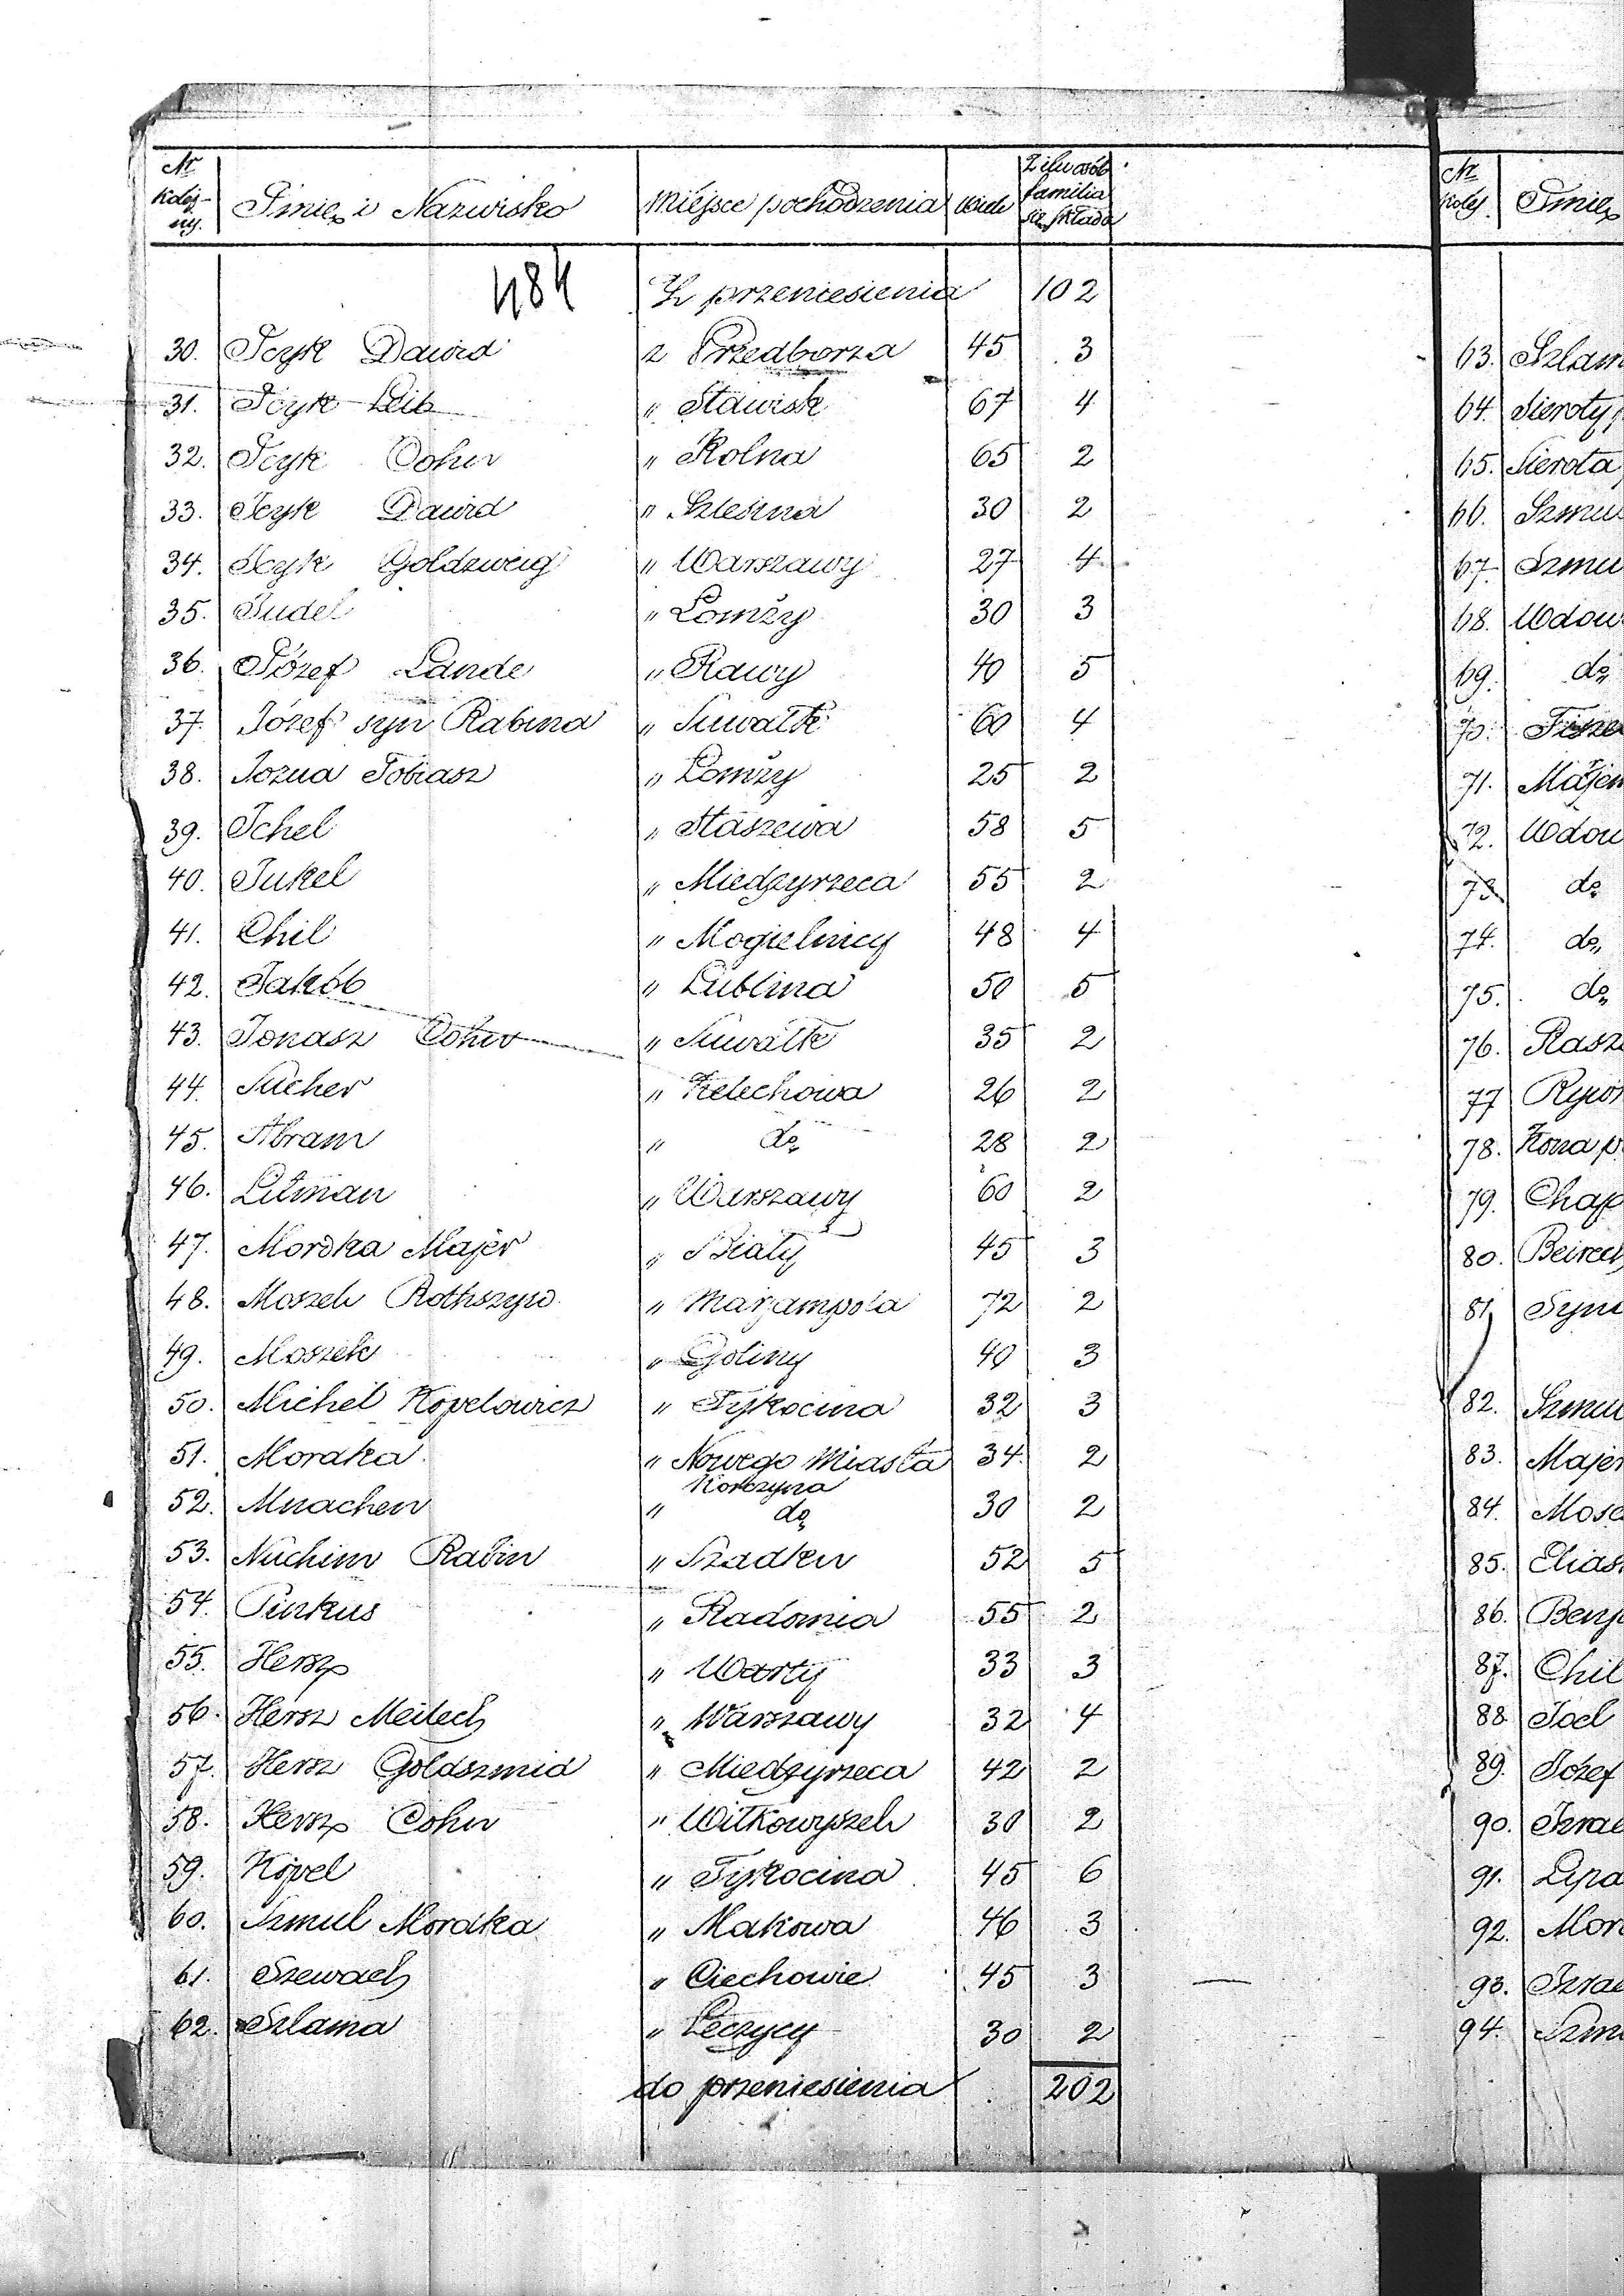 Nr kolejny. Imię i Nazwisko Miejsce pochodzenia Wiek Z ilu osób familia się składa
484 Z przeniesienia 102
30. Icyk Dawid z Przedborza 45 3
31. Icyk Leib " Stawisk 67 4
32. Icyk Cohn " Kolna 65 2
33. Icyk Dawid " Szleszna 30 2
34. Icyk Goldzweig " Warszawy 27 4
35. Judel " Łomży 30 3
36. Józef Lande " Rawy 40 5
37. Józef syn Rabina " Suwałk 60 4
38. Jozua Tobiasz " Łomży 25 2
39. Ichel " Staszewa 58 5
40. Jukel " Miedzyrzeca 55 2
41. Chil " Mogielnicy 48 4
42. Jakób " Lublina 50 5
43. Jonasz Cohn " Suwałk 35 2
44. Sucher " Żelechowa 26 2
45. Abram " do 28 2
46. Litman " Warszawy 60 2
47. Mordka Majer " Biały 45 3
48. Moszek Rothszyld " Marjampola 72 2
49. Moszek " Goliny 40 3
50. Michel Kopelowicz " Tykocina 32 3
51. Mordka " Nowego Miasta 34 2
Korczyna
52. Mnachem " do 30 2
53. Nuchim Rabin " Szadku 52 5
54. Pinkus " Radomia 55 2
55. Hersz " Warty 33 3
56. Hersz Meilech " Warszawy 32 4
57. Hersz Goldszmid " Miedzyrzeca 42 2
58. Hersz Cohn " Wiłkowyszek 30 2
59. Kopel " Tykocina 45 6
60. Szmul Mordka " Makowa 46 3
61. Szewach " Ciechowie 45 3
62. Szlama " Łęczycy 30 2
do przeniesienia 202
Nr kolej. Imię
63.
64. Sieroty
65. Sierota
66.
67.
68.
69. do
70.
71.
72.
73. do
74. do
75. do
76.
77
78. Żona p.
79.
80.
81.
82.
83. Majer
84.
85.
86.
87. Chil
88. Joel
89. Józef
90.
91.
92.
93.
94.